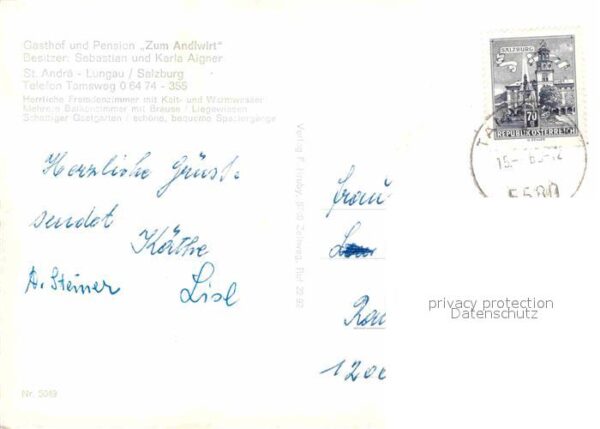 Gasthof und Pension „Zum Andlwirt"
Besitzer: Sebastian und Karla Aigner
St. Andrä - Lungau / Salzburg
Telefon Tamsweg 0 64 74 - 355
Herrliche Fremdenzimmer mit Kalt- und Warmwasser
Mehrere Balkonzimmer mit Brause / Liegewiesen
Schattiger Gastgarten / schöne, bequeme Spaziergänge
Herzliche Grüsse
sendet
Käthe
A. Steiner
Lisl
Nr. 5049
Verlag F. Hruby, 8740 Zeltweg,
SALZBURG
70
REPUBLIK ÖSTERREICH
TA
5580
Frau
1200
privacy protection
Datenschutz